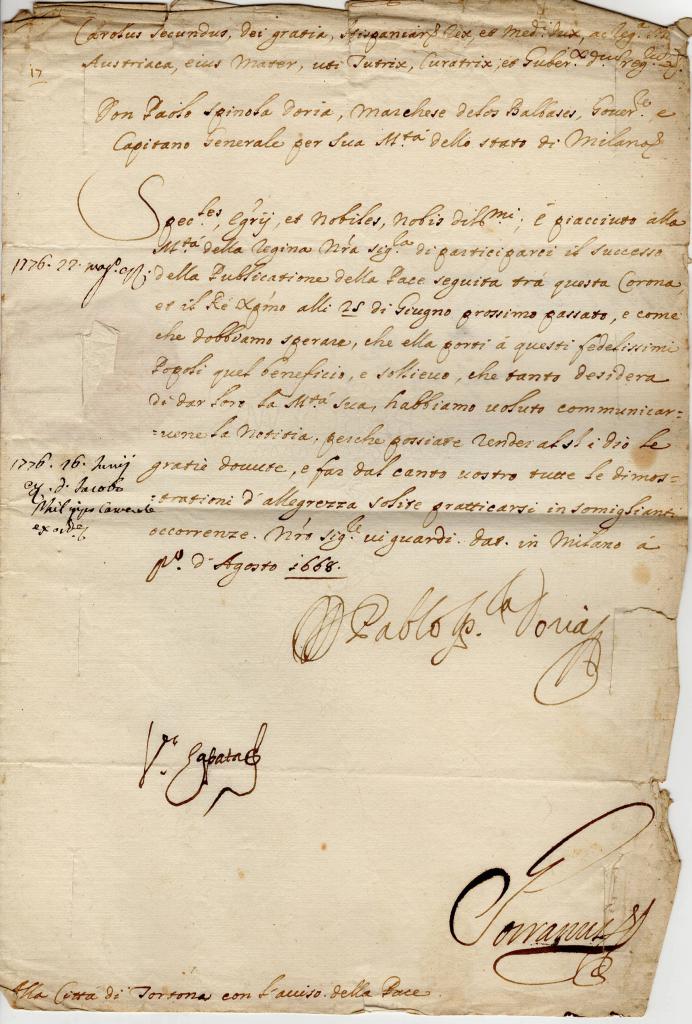 Carolus Secundus, dei gratia, Hispaniarȝ Rex, et Med: Dux, ac Reg.ª
Austriaca, eius Mater, uti Tutrix, Curatrix, et Guber.ˣ
17
Don Paolo Spinola Doria, Marchese delos Balbases, Gover.ʳᵉ e
Capitano Generale per Sua M.ᵗᵃ dello stato di Milano
Spec.ˡᵉˢ, Egrij, et Nobiles, Nobis dil.ᵐⁱ; è piacciuto alla
M.ᵗᵃ della Regina Nr̃a Sig.ʳᵃ di participarci il successo
1776. 27.
della Publicatione della Pace seguita trà questa Corona,
et il Ré Xp̃mo alli 25 di Giugno prossimo passato, e come
che dobbiamo sperare, che ella porti à questi fedelissimi
Popoli quel beneficio, e sollievo, che tanto desidera
di dar loro la M.ᵗᵃ Sua, habbiamo voluto communicar-
-vene la Notitia, perche possiate render al S.ʳ Idio le
1776. 16. Junij
gratie dovute, e far dal canto vostro tutte le dimos-
Jacobo
Philippo
-trationi d'allegrezza solite pratticarsi in somiglianti
occorrenze. Nr̃o Sig.ʳᵉ vi guardi. dat. in Milano à
p.º d'Agosto 1668.
D Pablo Sp.ˡᵃ Doria
V.ᵗ Zapata
Alla Città di Tortona con l'auiso della Pace